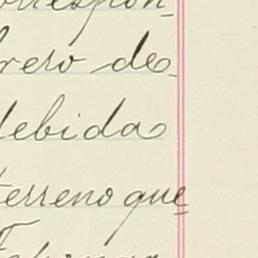 correspon-
brero de
debida
terreno que